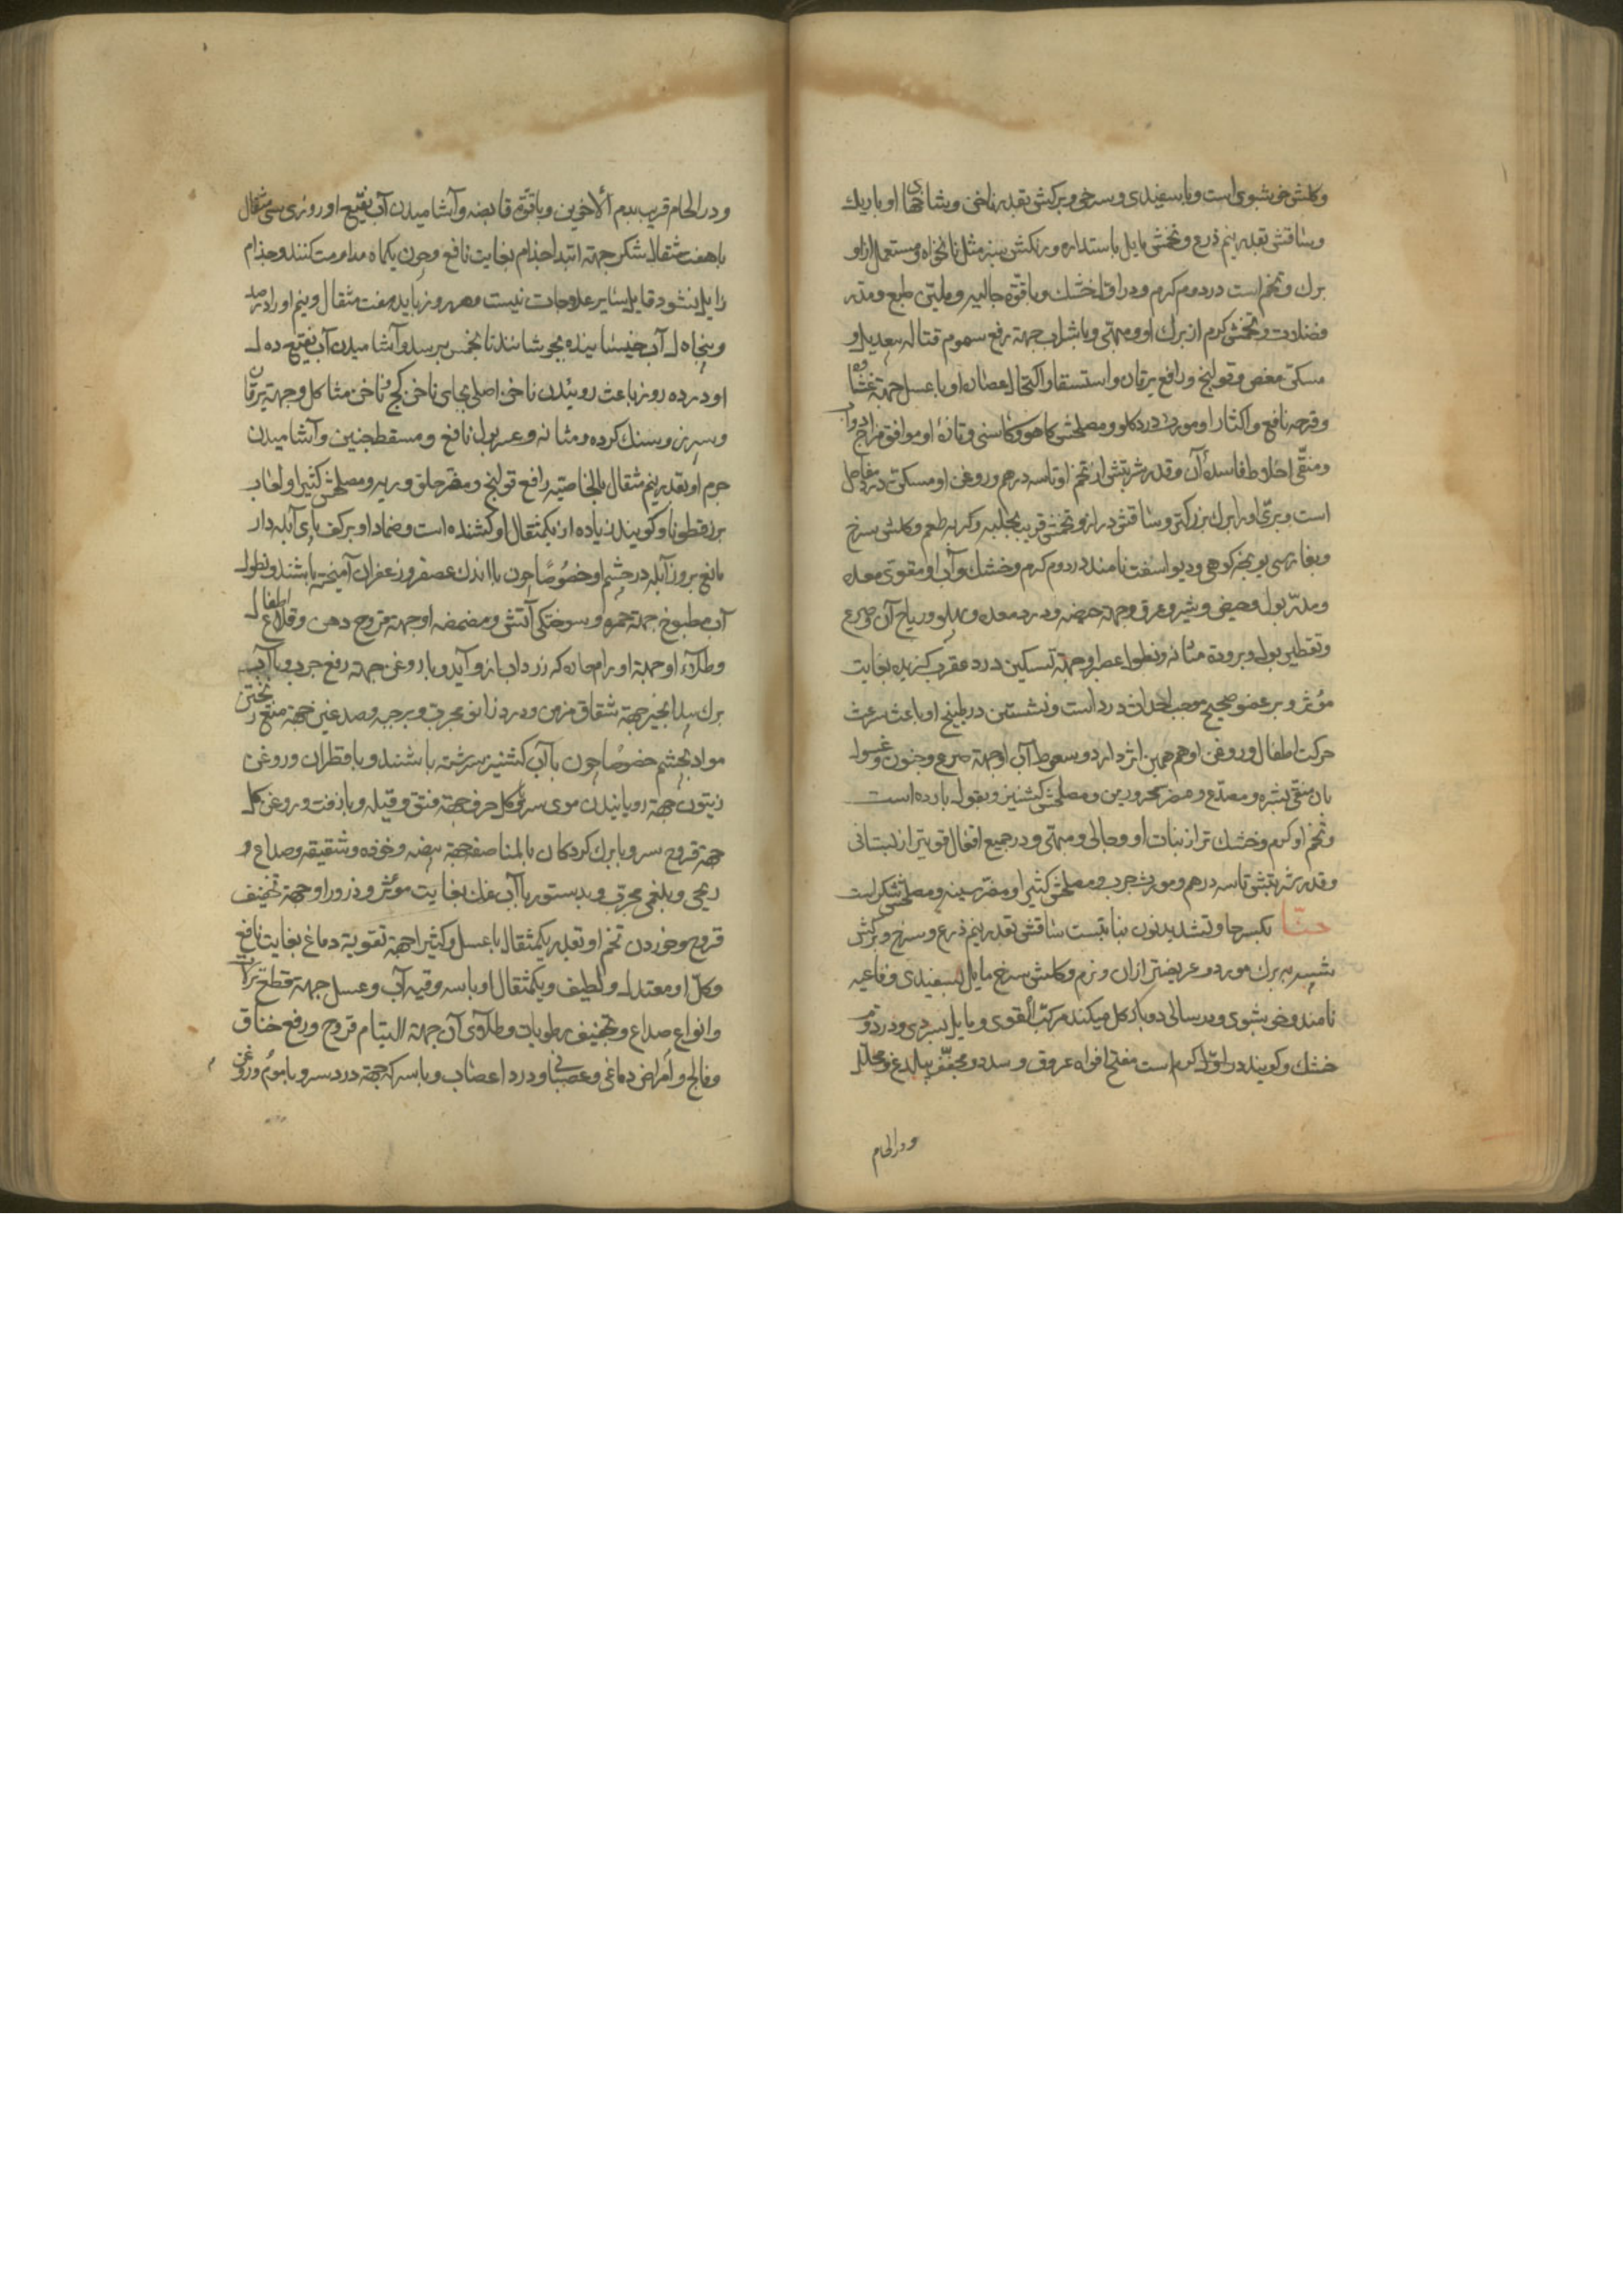 وکلش خوشبوی است و با سفیدی و سرخی و برکش بقدر ناخن و شاخهای او باریک
و ساقش بقدر نیم ذرع و تخمش مایل باستداره و رنکش سبز مثل نانخواه و مستعمل از او
برک و تخم است در دوم کرم و در اول خشک و با قوة جالیه و ملین طبع و مدر
فضلات و تخمش کرم از برک او و مبهی و با شراب جهة رفع سموم قتاله بیعدیل و
مسکن مغص و قولنج و رافع یرقان و استسقا و اکتحال عصاره او با عسل جهة غشاوه
و قرحه نافع و اکثار او مورث درد کلو و مصلحش کاهو و کاسنی و تازه او موافق مزاج دواب
و منقی اخلاط فاسده آن و قدر شربتش از تخم او تا سه درهم و روغن او مسکن درد مفاصل
است و بری او را برک بزرکتر و ساقش دراز و تخمش قریب بحلبه و کریه طعم و کلش سرخ
و بفارسی یونجه کوهی و دیو اسفت نامند در دوم کرم و خشک و آب او مقوی معده
و مدر بول و حیض و شیر و عرق و جهة هیضه و درد معده و پهلو و ریاح آن و صرع
و تقطیر بول و برودة مثانه و نطول عصیر او جهة تسکین درد عقرب کزیده بغایت
مؤثر و بر عضو صحیح موجب احداث درد است و نشستن در طبیخ او باعث سرعت
حرکت اطفال و روغن او هم همین اثر دارد و سعوط آب او جهة صرع و جنون و غسول
بان منقی بشره و مصدع و مضر محرورین و مصلحش کشنیز و بقول بارده است
و تخم او کرم و خشک تر از نبات او و جالی و مبهی و در جمیع افعال قویتر از بستانی
و قدر شربتش تا سه درهم و مورث جرب و مصلحش کثیرا و مضر سینه و مصلحش شکر است
حنا بکسر حا و تشدید نون نباتیست ساقش بقدر نیم ذرع و سرخ و برکش
شبیه ببرک مورد و عریضتر از ان و نرم و کلش سرخ مایل بسفیدی و فاغیه
نامند و خوشبوی و در سالی دو بار کل میکند مرکب القوی و مایل بسردی و در دوم
خشک و کویند در اول کرم است مفتح افواه عروق و سدد و مجفف بیلذع و محلل
و در الحام
و در الحام قریب بدم الاخوین و با قوة قابضه و آشامیدن آب نقیع او روزی سی مثقال
با هفت مثقال شکر جهة ابتدا جذام بغایت نافع و چون یکماه مداومت کنند و جذام
زایل نشود قابل سایر علاجات نیست و هر روز باید هفت مثقال و نیم او را در صد
و پنجاه آب خیسانیده بجوشانند تا بخمس برسد و آشامیدن آب نقیع ده
او در ده روز باعث روئیدن ناخن اصلی بجای ناخن کج و ناخن متاکل و جهة یرقان
و سپرز و سنک کرده و مثانه و عسر بول نافع و مسقط جنین و آشامیدن
جرم او بقدر نیم مثقال بالخاصیه رافع قولنج و مضر حلق و ریه و مصلحش کثیرا و لعاب
بزرقطونا و کویند زیاده از یکمثقال او کشنده است و ضماد او بر کف پای آبله دار
مانع بروز آبله در چشم او خصوصا چون با اندک عصفر و زعفران آمیخته باشند و نطول
آب مطبوخ جهة جمره و سوختکی آتش و مضمضه او جهة قروح دهن و قلاع اطفال
و طلاء او جهة اورام حاره که زرداب از و آید و با روغن جهة رفع جرب و با آب
برک بیدانجیر جهة شقاق مزمن و درد زانو مجرب و بر جبهه و صدغین جهة منع ریختن
مواد بچشم خصوصا چون با آب کشنیز سرشته باشند و با قطران و روغن
زیتون جهة رویانیدن موی سر و کل حرف جهة فتق و قیله و با زفت و روغن کل
جهة قروح سر و با برک کردکان بالمناصفه جهة بیضه و خوذه و شقیقه و صداع و
ریحی و بلغمی مجرب و بدستور با آب غلک بغایت مؤثر و ذرور او جهة تجفیف
قروح و خوردن تخم او بقدر یکمثقال با عسل و کثیرا جهة تقویة دماغ بغایت نافع
و کل او معتدل و لطیف و یکمثقال او با سه وقیه آب و عسل جهة قطع نزلات
و انواع صداع و تجفیف رطوبات و طلاءی آن جهة التیام قروح و رفع خناق
و فالج و امراض دماغی و عصبانی و درد اعصاب و با سرکه جهة درد سر و با موم و روغن